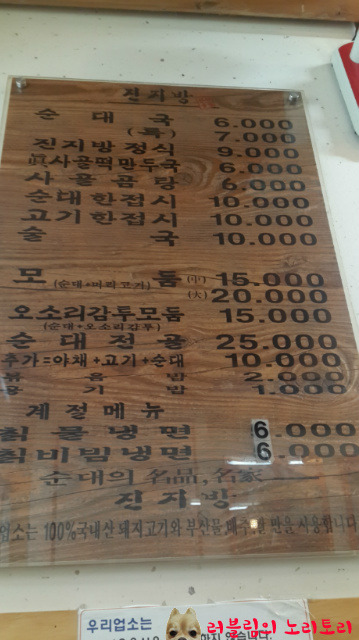 진지방
순대국 6.000
(특) 7.000
진지방정식 9.000
眞사골떡만두국 6.000
사골곰탕 6.000
순대한접시 10.000
고기한접시 10.000
술국 10.000
모둠 (中) 15.000
(순대+머리고기) (大) 20.000
오소리감투모둠 15.000
(순대+오소리감투)
순대전골 25.000
추가=야채+고기+순대 10.000
볶음밥 2.000
공기밥 1.000
계절메뉴
칡물냉면 6.000
칡비빔냉면 6.000
순대의 名品, 名家
진지방
업소는 100%국내산 돼지고기와 부산물 만을 사용합니다
우리업소는
하지 않습니다.
러블림의 노리토리